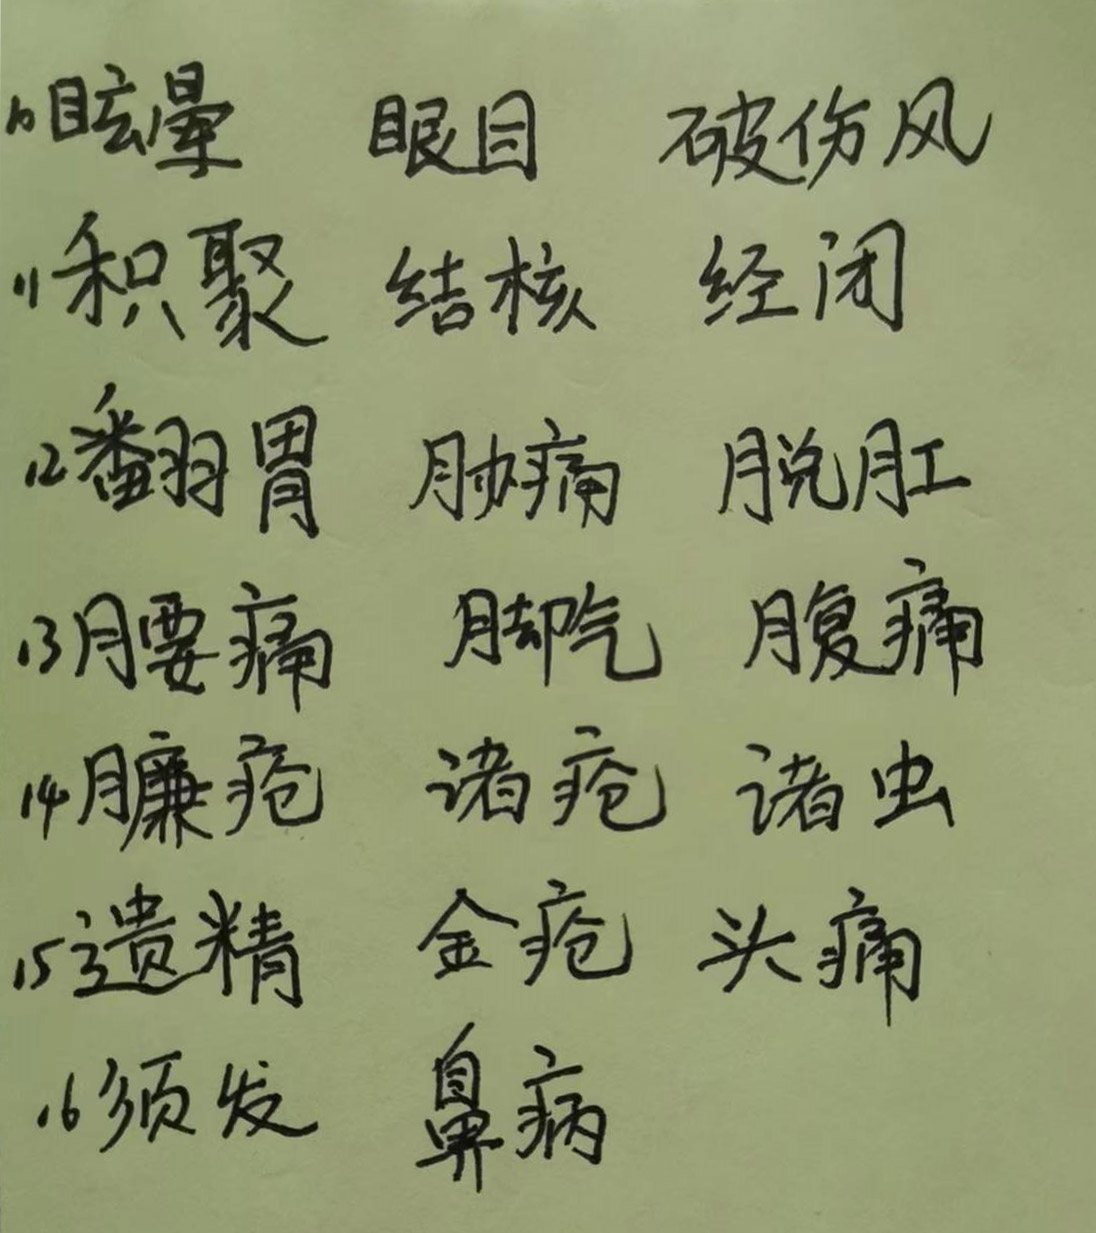 10 眩晕 眼目 破伤风
11 积聚 结核 经闭
12 翻胃 胁痛 脱肛
13 腰痛 脚气 腹痛
14 臁疮 诸疮 诸虫
15 遗精 金疮 头痛
16 须发 鼻病